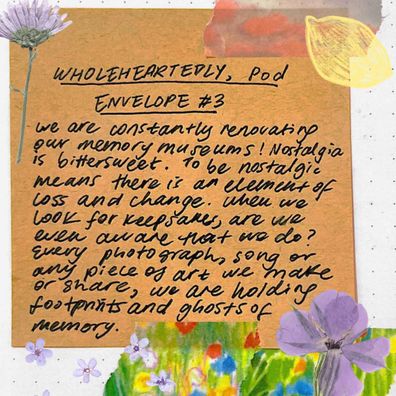 WHOLEHEARTEDLY, Pod
ENVELOPE #3
we are constantly renovating
our memory museums! Nostalgia
is bittersweet. To be nostalgic
means there is an element of
loss and change. when we
look for keepsakes, are we
even aware that we do?
Every photograph, song or
any piece of art we make
or share, we are holding
footprints and ghosts of
memory.